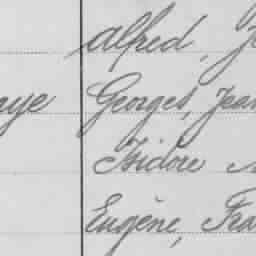 Alfred,
aye Georges, Jean
Isidore
Eugène, Fra